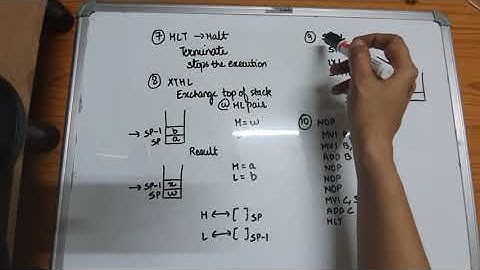 ⑦ HLT → Halt
Terminate
stops the execution
⑧ XTHL
Exchange top of stack
ⓦ HL pair
H = w
→ SP-1 b
SP a
Result
H = a
L = b
→ SP-1 x
SP w
H ↔ [ ] SP
L ↔ [ ] SP-1
⑨
⑩ NOP
MVI
MVI B,
ADD B
NOP
NOP
NOP
MVI C, 5
ADD C
HLT